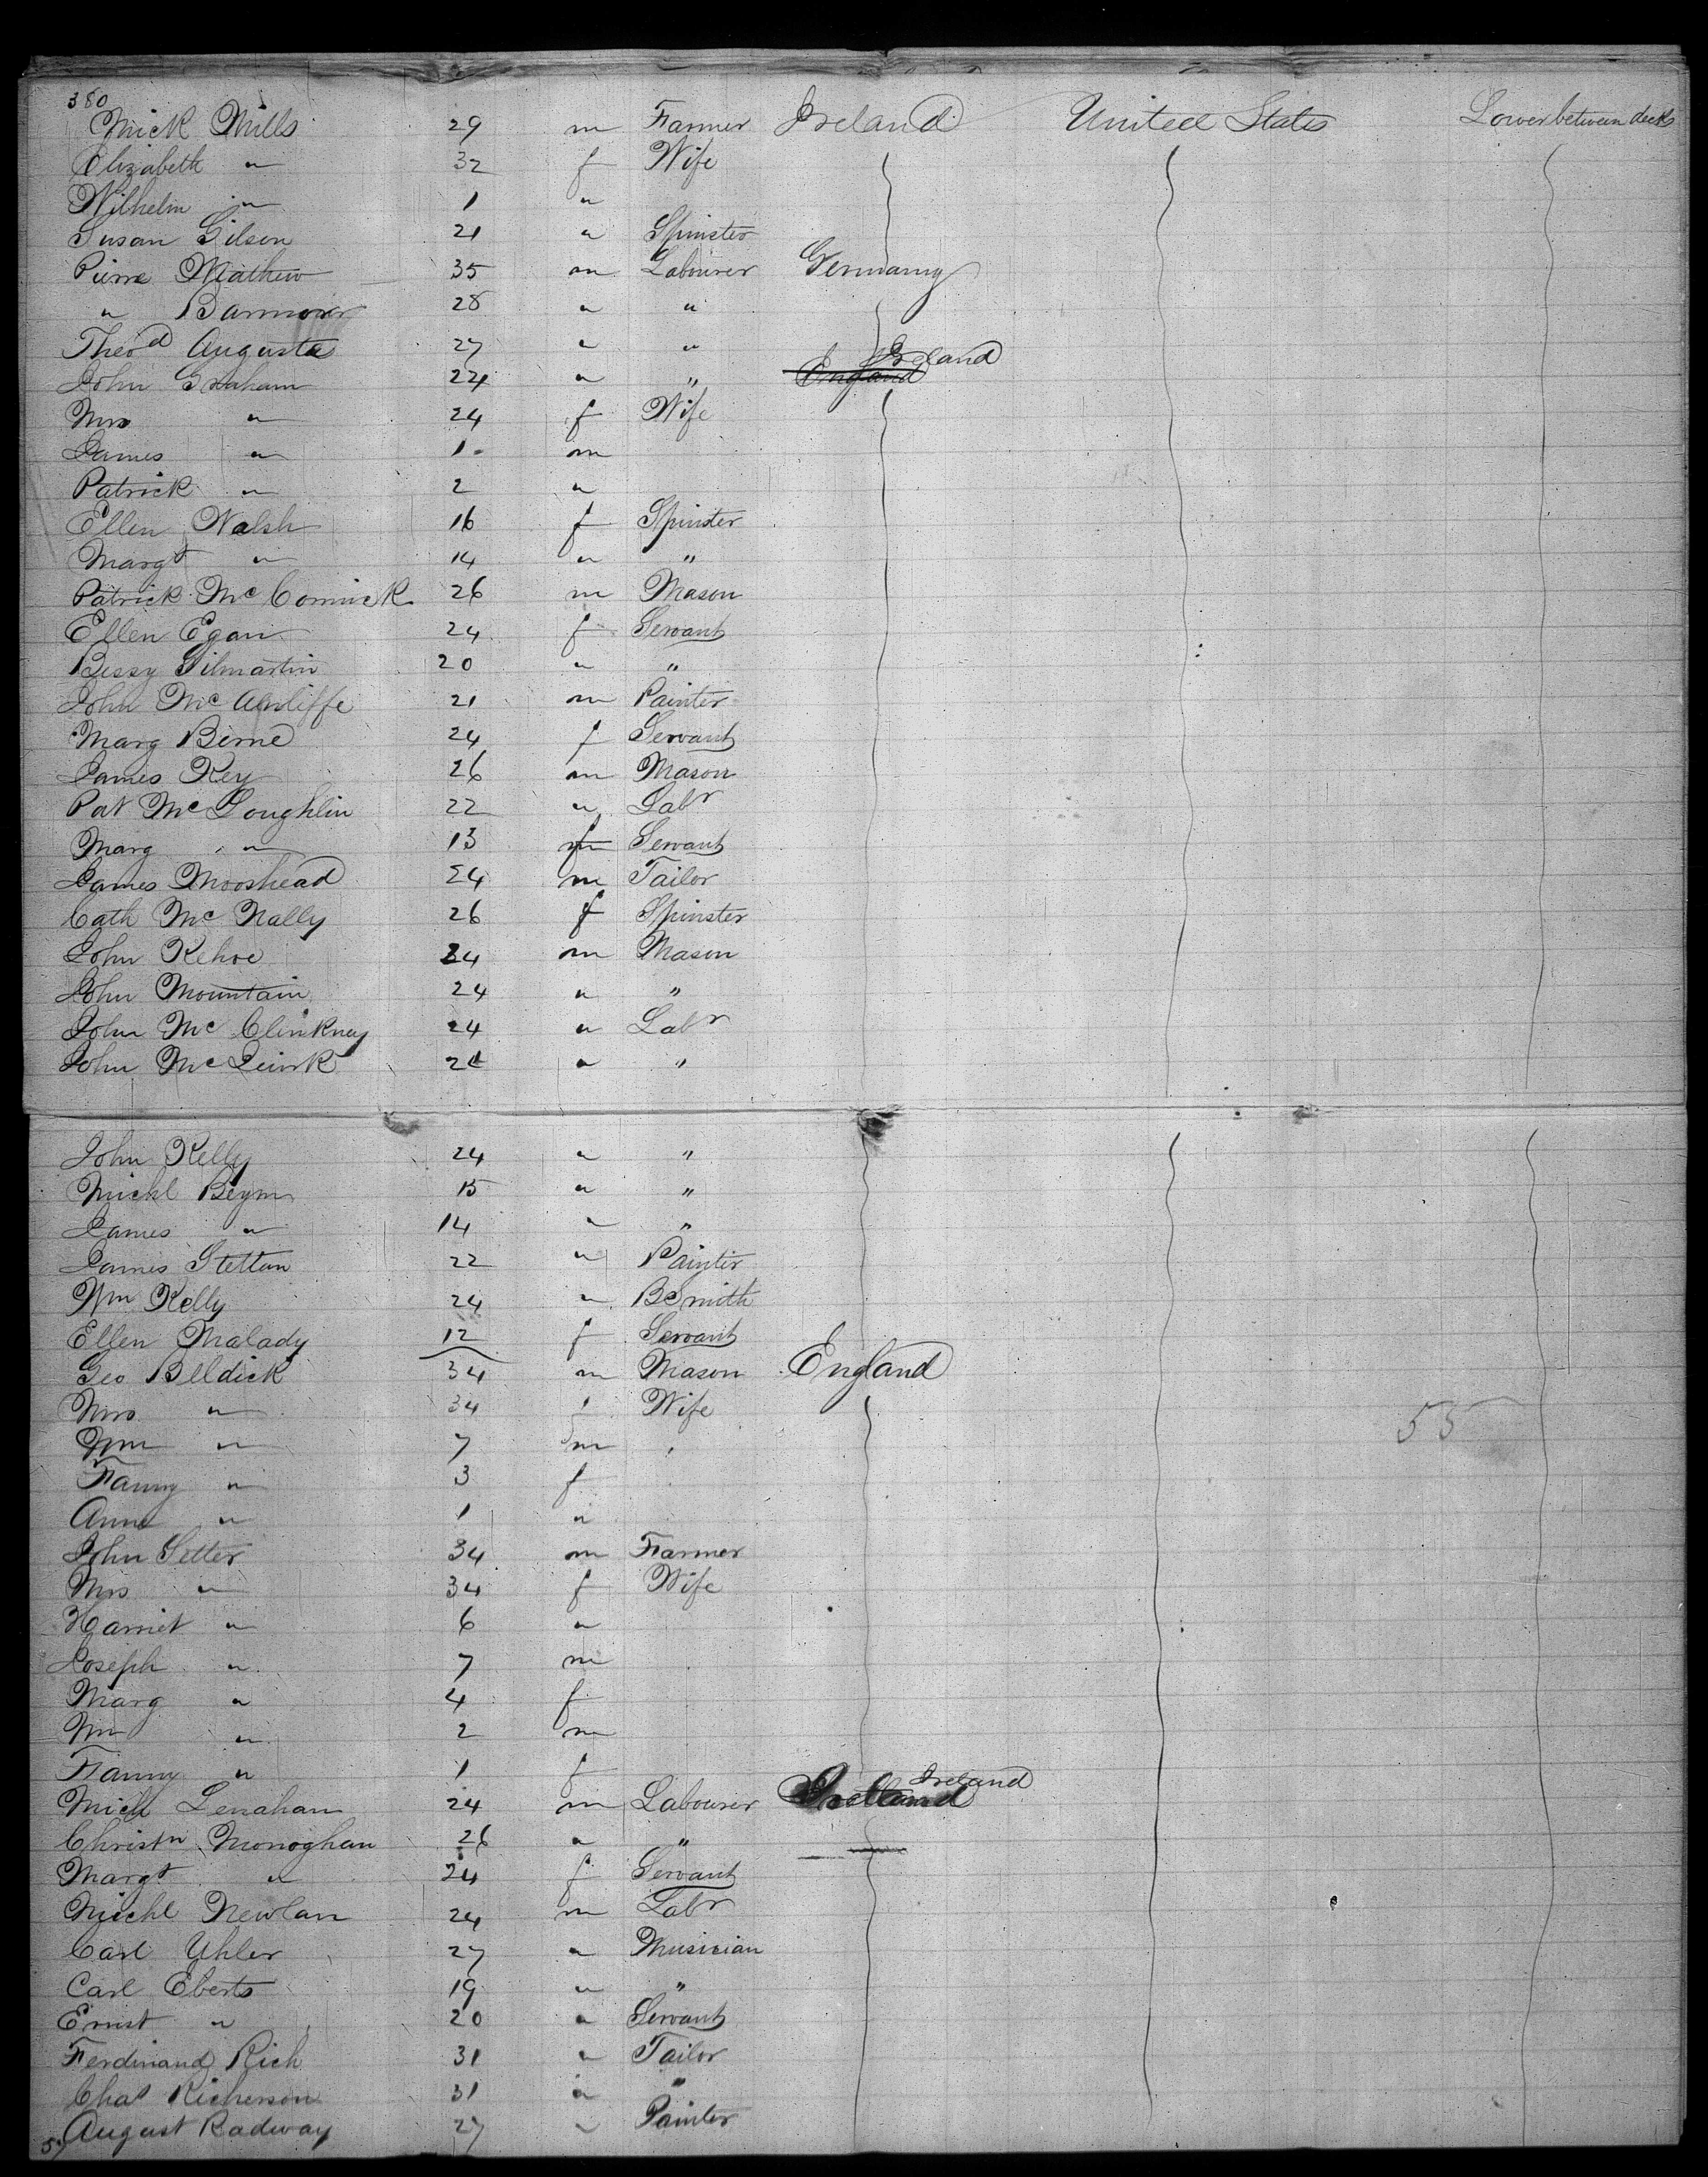 380
Mick Mills 29 m Farmer Ireland United States Lower between decks
Elizabeth " 32 f Wife
Wilhelm " 1 "
Susan Gilson 21 " Spinster
Pierre Mathew 35 m Labourer Germany
" Bammorer 28 " "
Theod Augusta 27 " "
Ireland
John Graham 24 " " England
Mrs " 24 f Wife
James " 1 m
Patrick " 2 "
Ellen Walsh 16 f Spinster
Margt " 14 " "
Patrick McCormick 26 m Mason
Ellen Egan 24 f Servant
Bessy Gilmartin 20 " "
John McAuliffe 21 m Painter
Marg Birne 24 f Servant
James Key 26 m Mason
Pat McLoughlin 22 " Labr
Marg " 13 f Servant
James Mooshead 24 m Tailor
Cath McNally 26 f Spinster
John Kehoe 24 m Mason
John Mountain 24 " "
John McClinkney 24 " Labr
John McQuirk 21 " "
John Kelly 24 " "
Michl Beym 15 " "
James " 14 " "
James Stettan 22 " Painter
Wm Kelly 24 " BSmith
Ellen Malady 12 f Servant
Geo Belldick 34 m Mason England
Mrs " 34 f Wife
Wm " 7 m 55
Fanny " 3 f
Anne " 1 "
John Setter 34 m Farmer
Mrs " 34 f Wife
Harriet " 6 "
Joseph " 7 m
Marg " 4 f
Wm " 2 m
Fanny " 1 f
Ireland
Michl Lenahan 24 m Labourer
Christn Monoghan 26 " "
Margt " 24 f Servant
Michl Newlan 24 m Labr
Carl Yhler 27 " Musician
Carl Eberts 19 " "
Ernst " 20 " Servant
Ferdinand Rich 31 " Tailor
Chas Richerson 31 " "
August Radway 27 " Painter
57